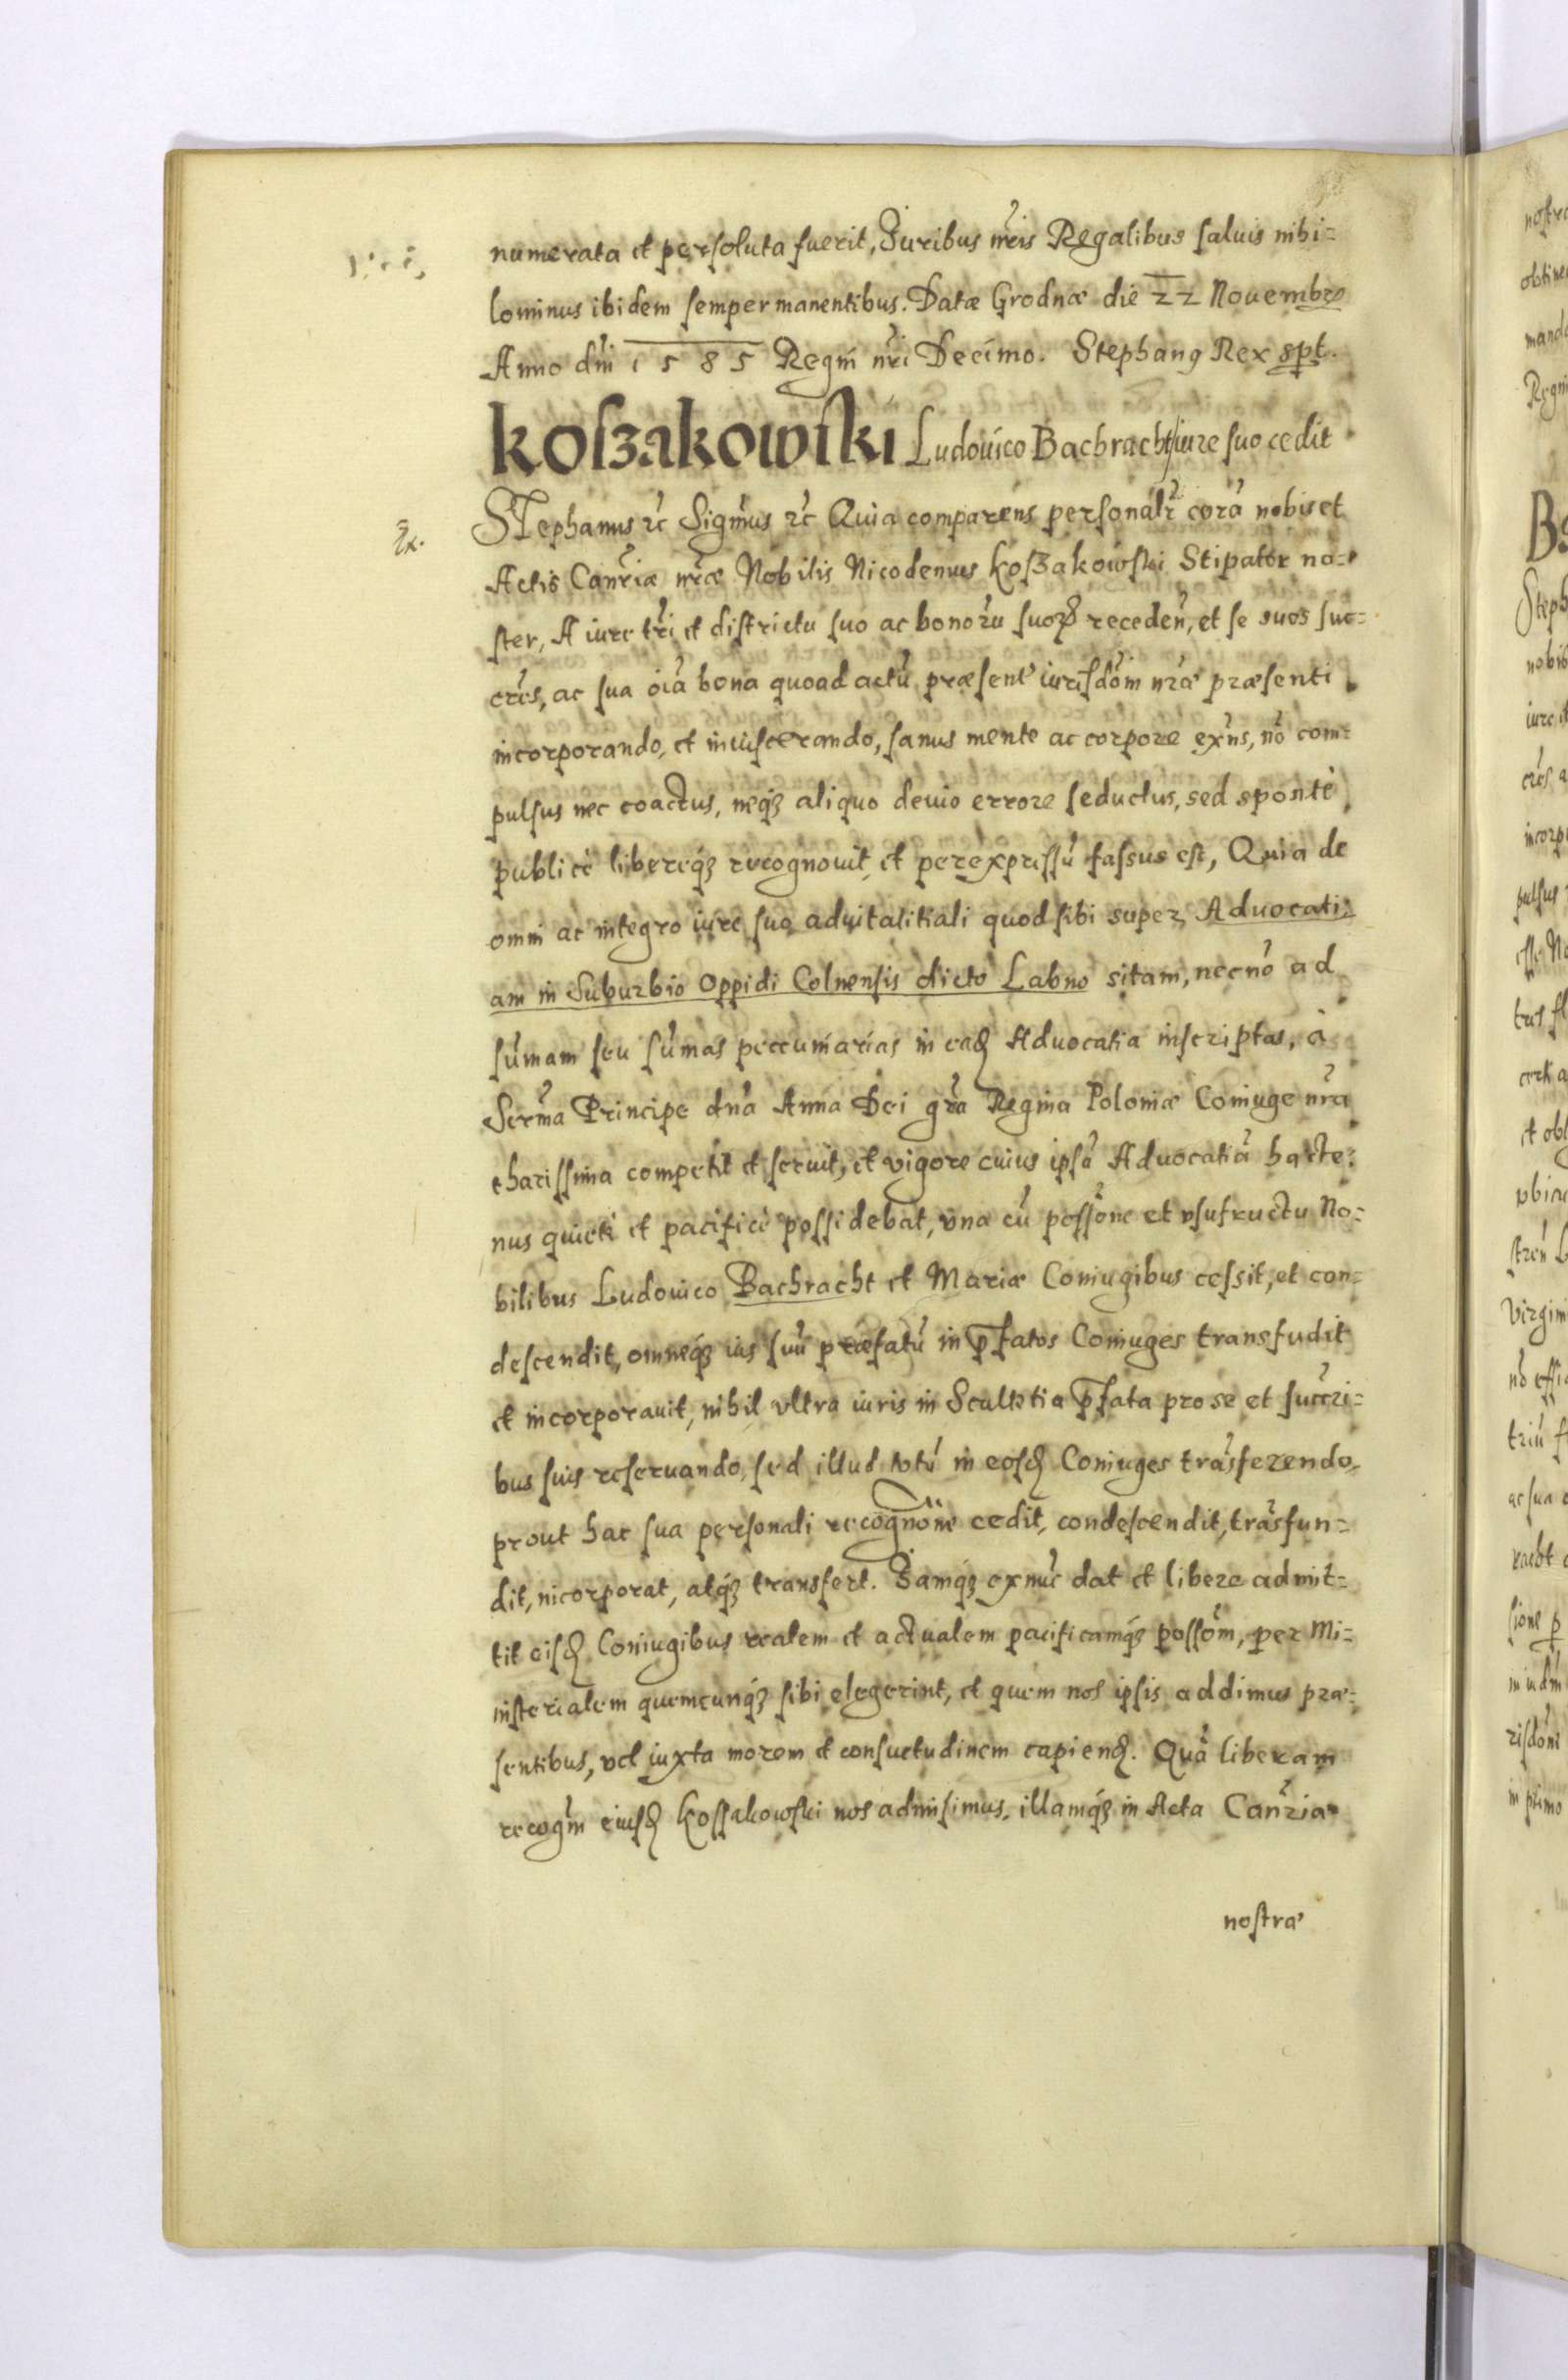 numerata et persoluta fuerit, Juribus nris Regalibus saluis nihi=
lominus ibidem semper manentibus. Datæ Grodnæ die 22 Nouembre
Anno dni 1585 Regni nri Decimo. Stephang Rex spt.
koszakowski Ludouico Bachracht iure suo cedit
Ex. Stephanus rc Sigmus rc Quia comparens personalr corā nobis et
Actis Canriæ nræ Nobilis Nicodemus koszakowski Stipator no=
ster, A iure tri et districtu suo ac bonoru suoꝝ receden, et se suos suc=
cres, ac sua oia bona quoad actū præsent iurisdom nra præsenti
incorporando, et inuiscerando, sanus mente ac corpore exns, nō com=
pulsus nec coactus, neqꝫ aliquo deuio errore seductus, sed spontè
publicè libereqꝫ recognouit, et per expressū fassus est, Quia de
omni ac integro iure suo aduitalitiali quod sibi super Aduocati=
am in Suburbio Oppidi Colnensis dicto Labno sitam, necnō ad
sūmam seu sūmas peccuniarias in eaꝺ Aduocatia inscriptas, à
Serma Principe dna Anna Dei gra Regina Poloniæ Coniuge nra
charissima competit et seruit, et vigore cuius ipsā Aduocatiā hacte=
nus quietè et pacificè possidebat, vna cū possone et vsufructu No=
bilibus Ludouico Bachracht et Mariæ Coniugibus cessit, et con=
descendit, omneqꝫ ius suū præfatū in p̄fatos Coniuges transfudit
et incorporauit, nihil vltra iuris in Scultetia p̄fata pro se et succri=
bus suis reseruando, sed illud totū in eosꝺ Coniuges trāsferendo,
prout hac sua personali recognone cedit, condescendit, trāsfun=
dit, incorporat, atqꝫ transfert. Jamqꝫ ex nuc dat et libere admit=
tit eisꝺ Coniugibus realem et actualem pacificamqꝫ possom, per Mi=
nisterialem quemcunqꝫ sibi elegerint, et quem nos ipsis addimus præ=
sentibus, vel iuxta morem et consuetudinem capienꝺ. Quā liberam
recogm eiusꝺ Kossakowski nos admisimus, illamqꝫ in Acta Canriæ
nostræ